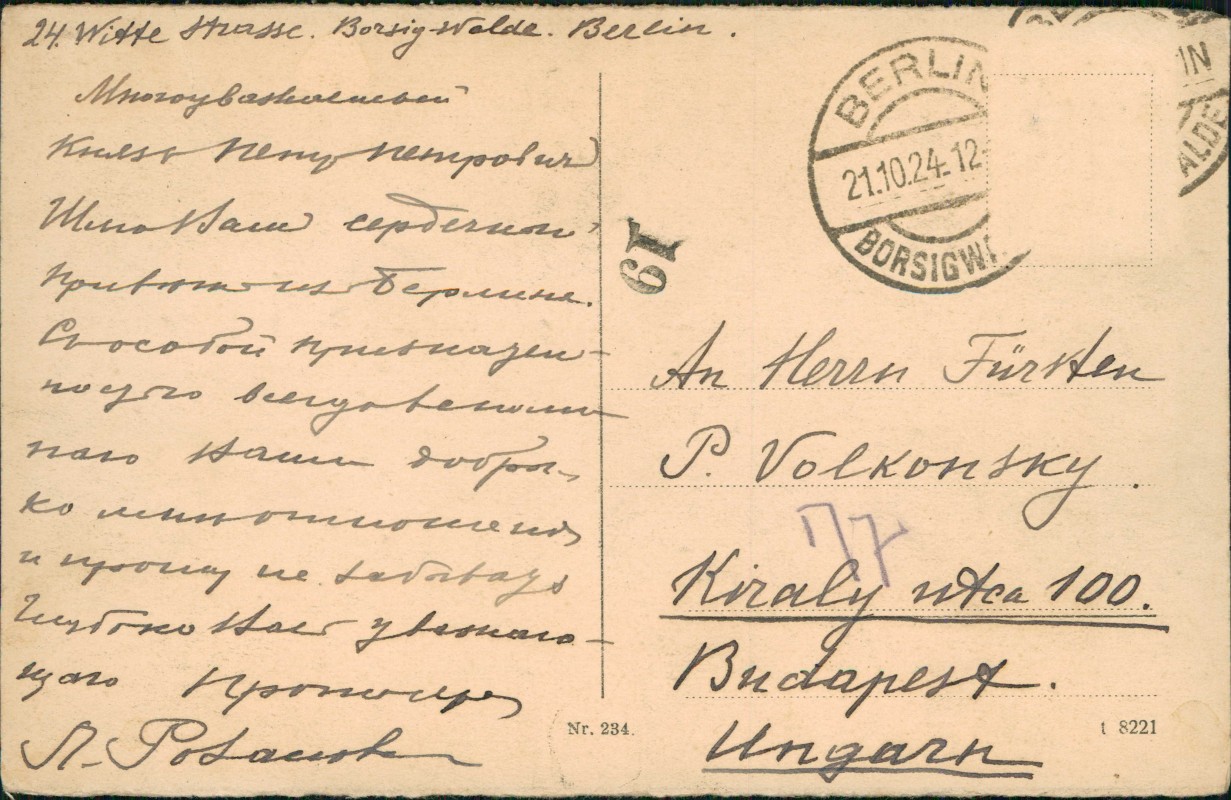 24. Witte Strasse. Borsig-Walde. Berlin.
Многоуважаемый
Князь Петр Петрович
Шлю Вам сердечный
привет из Берлина.
Съ особой признатель-
ностью всегда вспоми-
наю Ваши добры
ко мне отношения
и прошу не забывать
Глубоко Вас уважаю-
щаго Протоиерея
П. Розанов
BERLIN
21.10.24. 12-
BORSIGW
IN
ALDE
19
An Herrn Fürsten
P. Volkonsky.
17
Kiraly utca 100.
Budapest.
Ungarn
Nr. 234.
t 8221